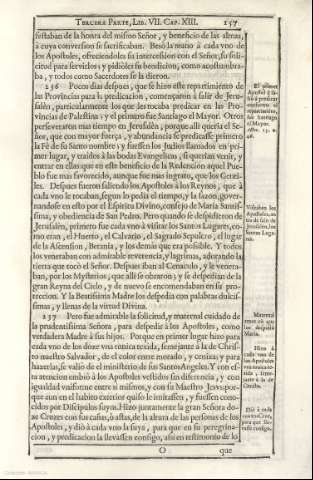 TERCERA PARTE, LIB. VII. CAP. XIII. 157
festaban de la honra del mismo Señor, y beneficio de las almas,
à cuya conversion se sacrificaban. Besò la mano à cada vno de
los Apostoles, ofreciendoles su intercession con el Señor, su soli-
citud para servirlos: y pidiòles su bendicion, como acostumbra-
ba, y todos como Sacerdotes se la dieron.
236 Pocos dias despues, que se hizo este repartimiento de
las Provincias para la predicacion, començaron à salir de Jeru-
salèn, particularmente los que les tocaba predicar en las Pro-
vincias de Palestina: y el primero fue Santiago el Mayor. Otros
perseveraron mas tiempo en Jerusalèn, porque alli queria el Se-
ñor, que con mayor fuerça, y abundancia se predicasse primero
la Fè de su Santo nombre: y fuessen los Judios llamados en pri-
mer lugar, y traidos à las bodas Evangelicas, si querian venir, y
entrar en ellas; que en este beneficio de la Redencion aquel Pue-
blo fue mas favorecido, aunque fue mas ingrato, que los Genti-
les. Despues fueron saliendo los Apostoles à los Reynos, que à
cada vno le tocaban, segun lo pedia el tiempo, y la sazon, gover-
nandose en esto por el Espiritu Divino, consejo de Maria Santis-
sima, y obediencia de San Pedro. Pero quando se despidieron de
Jerusalèn, primero fue cada vno à visitar los Santos Lugares, co-
mo eran, el Huerto, el Calvario, el Sagrado Sepulcro, el lugar
de la Ascension, Betania, y los demàs que era possible. Y todos
los veneraban con admirable reverencia, y lagrimas, adorando la
tierra que tocò el Señor. Despues iban al Cenaculo, y le venera-
ban, por los Mysterios, que alli se obraron; y se despedian de la
gran Reyna del Cielo, y de nuevo se encomendaban en su pro-
teccion. Y la Beatissima Madre los despedia con palabras dulcis-
simas, y llenas de la virtud Divina.
237 Pero fue admirable la solicitud, y maternal cuidado de
la prudentissima Señora, para despedir à los Apostoles, como
verdadera Madre à sus hijos. Porque en primer lugar hizo para
cada vno de los doze vna tunica texida, semejante à la de Chris-
to nuestro Salvador, de el color entre morado, y ceniza; y para
hazerlas, se valiò de el ministerio de sus Santos Angeles. Y con es-
ta atencion embiò à los Apostoles vestidos sin diferencia, y con
igualdad vniforme entre sì mismos, y con su Maestro Jesvs: por-
que aun en el habito exterior quiso le imitassen, y fuessen cono-
cidos por Discipulos suyos. Hizo juntamente la gran Señora do-
ze Cruzes con sus cañas, ò astas, de la altura de las personas de los
Apostoles, y diò à cada vno la suya, para que en su peregrina-
cion, y predicacion la llevassen consigo, assi en testimonio de lo
O que
El primer
Apostol q̃ sa-
liò à predicar
conforme el
repartimiento,
fue Santiago
el Mayor.
Visitaban los
Apostoles, an-
tes de salir de
Jerusalèn, los
Santos Luga-
res.
Maternal
amor cõ que
los despedia
Maria.
Hizo à
cada vno de
los Apostoles
vna tunica te-
xida, seme-
jante à la de
Christo.
Diò à cada
vno vna Cruz,
para que lle-
vassen consigo.